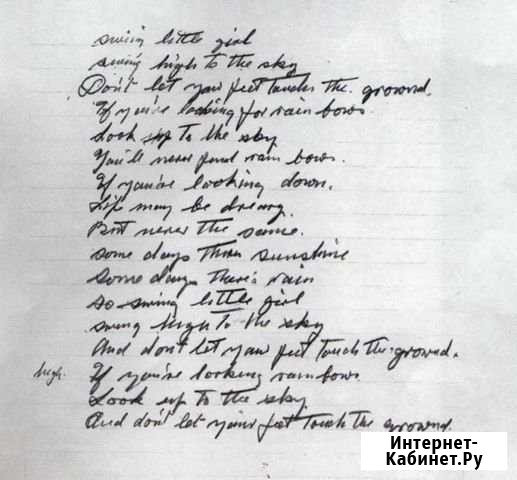 swing little girl
swing high to the sky
Don't let your feet touch the ground.
If you're looking for rain bows
Look up to the sky
You'll never find rain bows.
If you're looking down.
Life may be dreary.
But never the same.
some days there's sunshine
Some days there's rain
so swing little girl
swing high to the sky
And don't let your feet touch the ground.
high. If you're looking rainbows
Look up to the sky
And don't let your feet touch the ground.
Интернет-
Кабинет.Ру